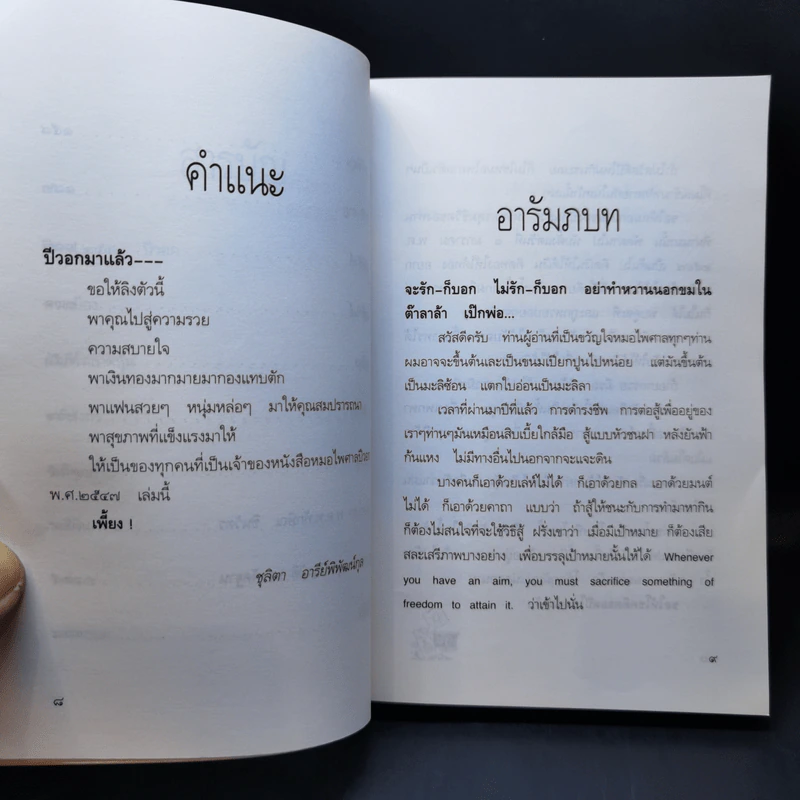 คำแนะ
ปีวอกมาแล้ว---
ขอให้ลิงตัวนี้
พาคุณไปสู่ความรวย
ความสบายใจ
พาเงินทองมากมายมากองแทบตัก
พาแฟนสวยๆ หนุ่มหล่อๆ มาให้คุณสมปรารถนา
พาสุขภาพที่แข็งแรงมาให้
ให้เป็นของทุกคนที่เป็นเจ้าของหนังสือหมอไพศาลปีวอก
พ.ศ.๒๕๔๗ เล่มนี้
เพี้ยง !
ชุลิตา อารีย์พิพัฒน์กุล
๘
อารัมภบท
จะรัก-ก็บอก ไม่รัก-ก็บอก อย่าทำหวานนอกขมใน
ต๊าลาล้า เป๊กพ่อ...
สวัสดีครับ ท่านผู้อ่านที่เป็นขวัญใจหมอไพศาลทุกๆท่าน
ผมอาจจะขึ้นต้นและเป็นขนมเปียกปูนไปหน่อย แต่มันขึ้นต้น
เป็นมะลิซ้อน แตกใบอ่อนเป็นมะลิลา
เวลาที่ผ่านมาปีที่แล้ว การดำรงชีพ การต่อสู้เพื่ออยู่ของ
เราๆท่านๆมันเหมือนสิบเบี้ยใกล้มือ สู้แบบหัวชนฝา หลังยันฟ้า
ก้นแหง ไม่มีทางอื่นไปนอกจากจะแจะดิน
บางคนก็เอาด้วยเล่ห์ไม่ได้ ก็เอาด้วยกล เอาด้วยมนต์
ไม่ได้ ก็เอาด้วยคาถา แบบว่า ถ้าสู้ให้ชนะกับการทำมาหากิน
ก็ต้องไม่สนใจที่จะใช้วิธีสู้ ฝรั่งเขาว่า เมื่อมีเป้าหมาย ก็ต้องเสีย
สละเสรีภาพบางอย่าง เพื่อบรรลุเป้าหมายนั้นให้ได้ Whenever
you have an aim, you must sacrifice something of
freedom to attain it. ว่าเข้าไปนั่น
๙